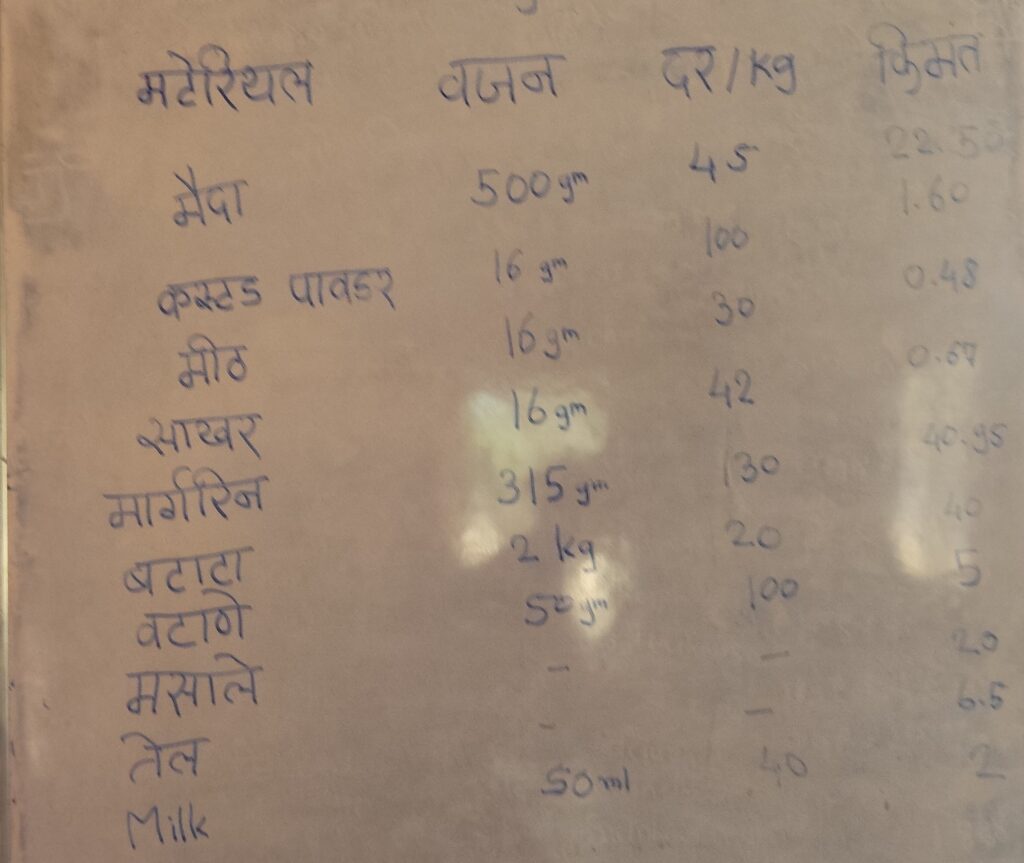 मटेरियल वजन दर/kg किंमत
मैदा 500 gm 45 22.50
कस्टड पावडर 16 gm 100 1.60
मीठ 16 gm 30 0.48
साखर 16 gm 42 0.67
मार्गारिन 315 gm 130 40.95
बटाटा 2 kg 20 40
वटाणे 50 gm 100 5
मसाले - - 20
तेल - - 6.5
Milk 50 ml 40 2